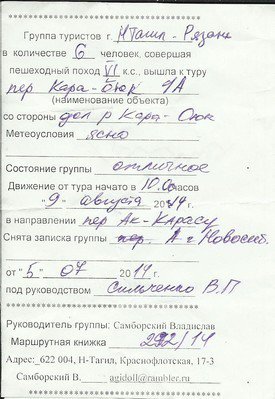 ********************************
Группа туристов г. Н Тагил - Рязань
в количестве 6 человек, совершая
пешеходный поход VI к.с., вышла к туру
пер Кара-Оюк 1А
(наименование объекта)
со стороны дол р Кара-Оюк
Метеоусловия ясно
Состояние группы отличное
Движение от тура начато в 10.00 часов
"9" августа 2014г.
в направлении пер Ак-Карасу
Снята записка группы г Новосиб.
от "5" 07 2014 г.
под руководством В.П
********************************
Руководитель группы: Самборский Владислав
Маршрутная книжка 292/14
Адрес: 622 004, Н-Тагил, Краснофлотская, 17-3
Самборский В. agidoll@rambler.ru
********************************